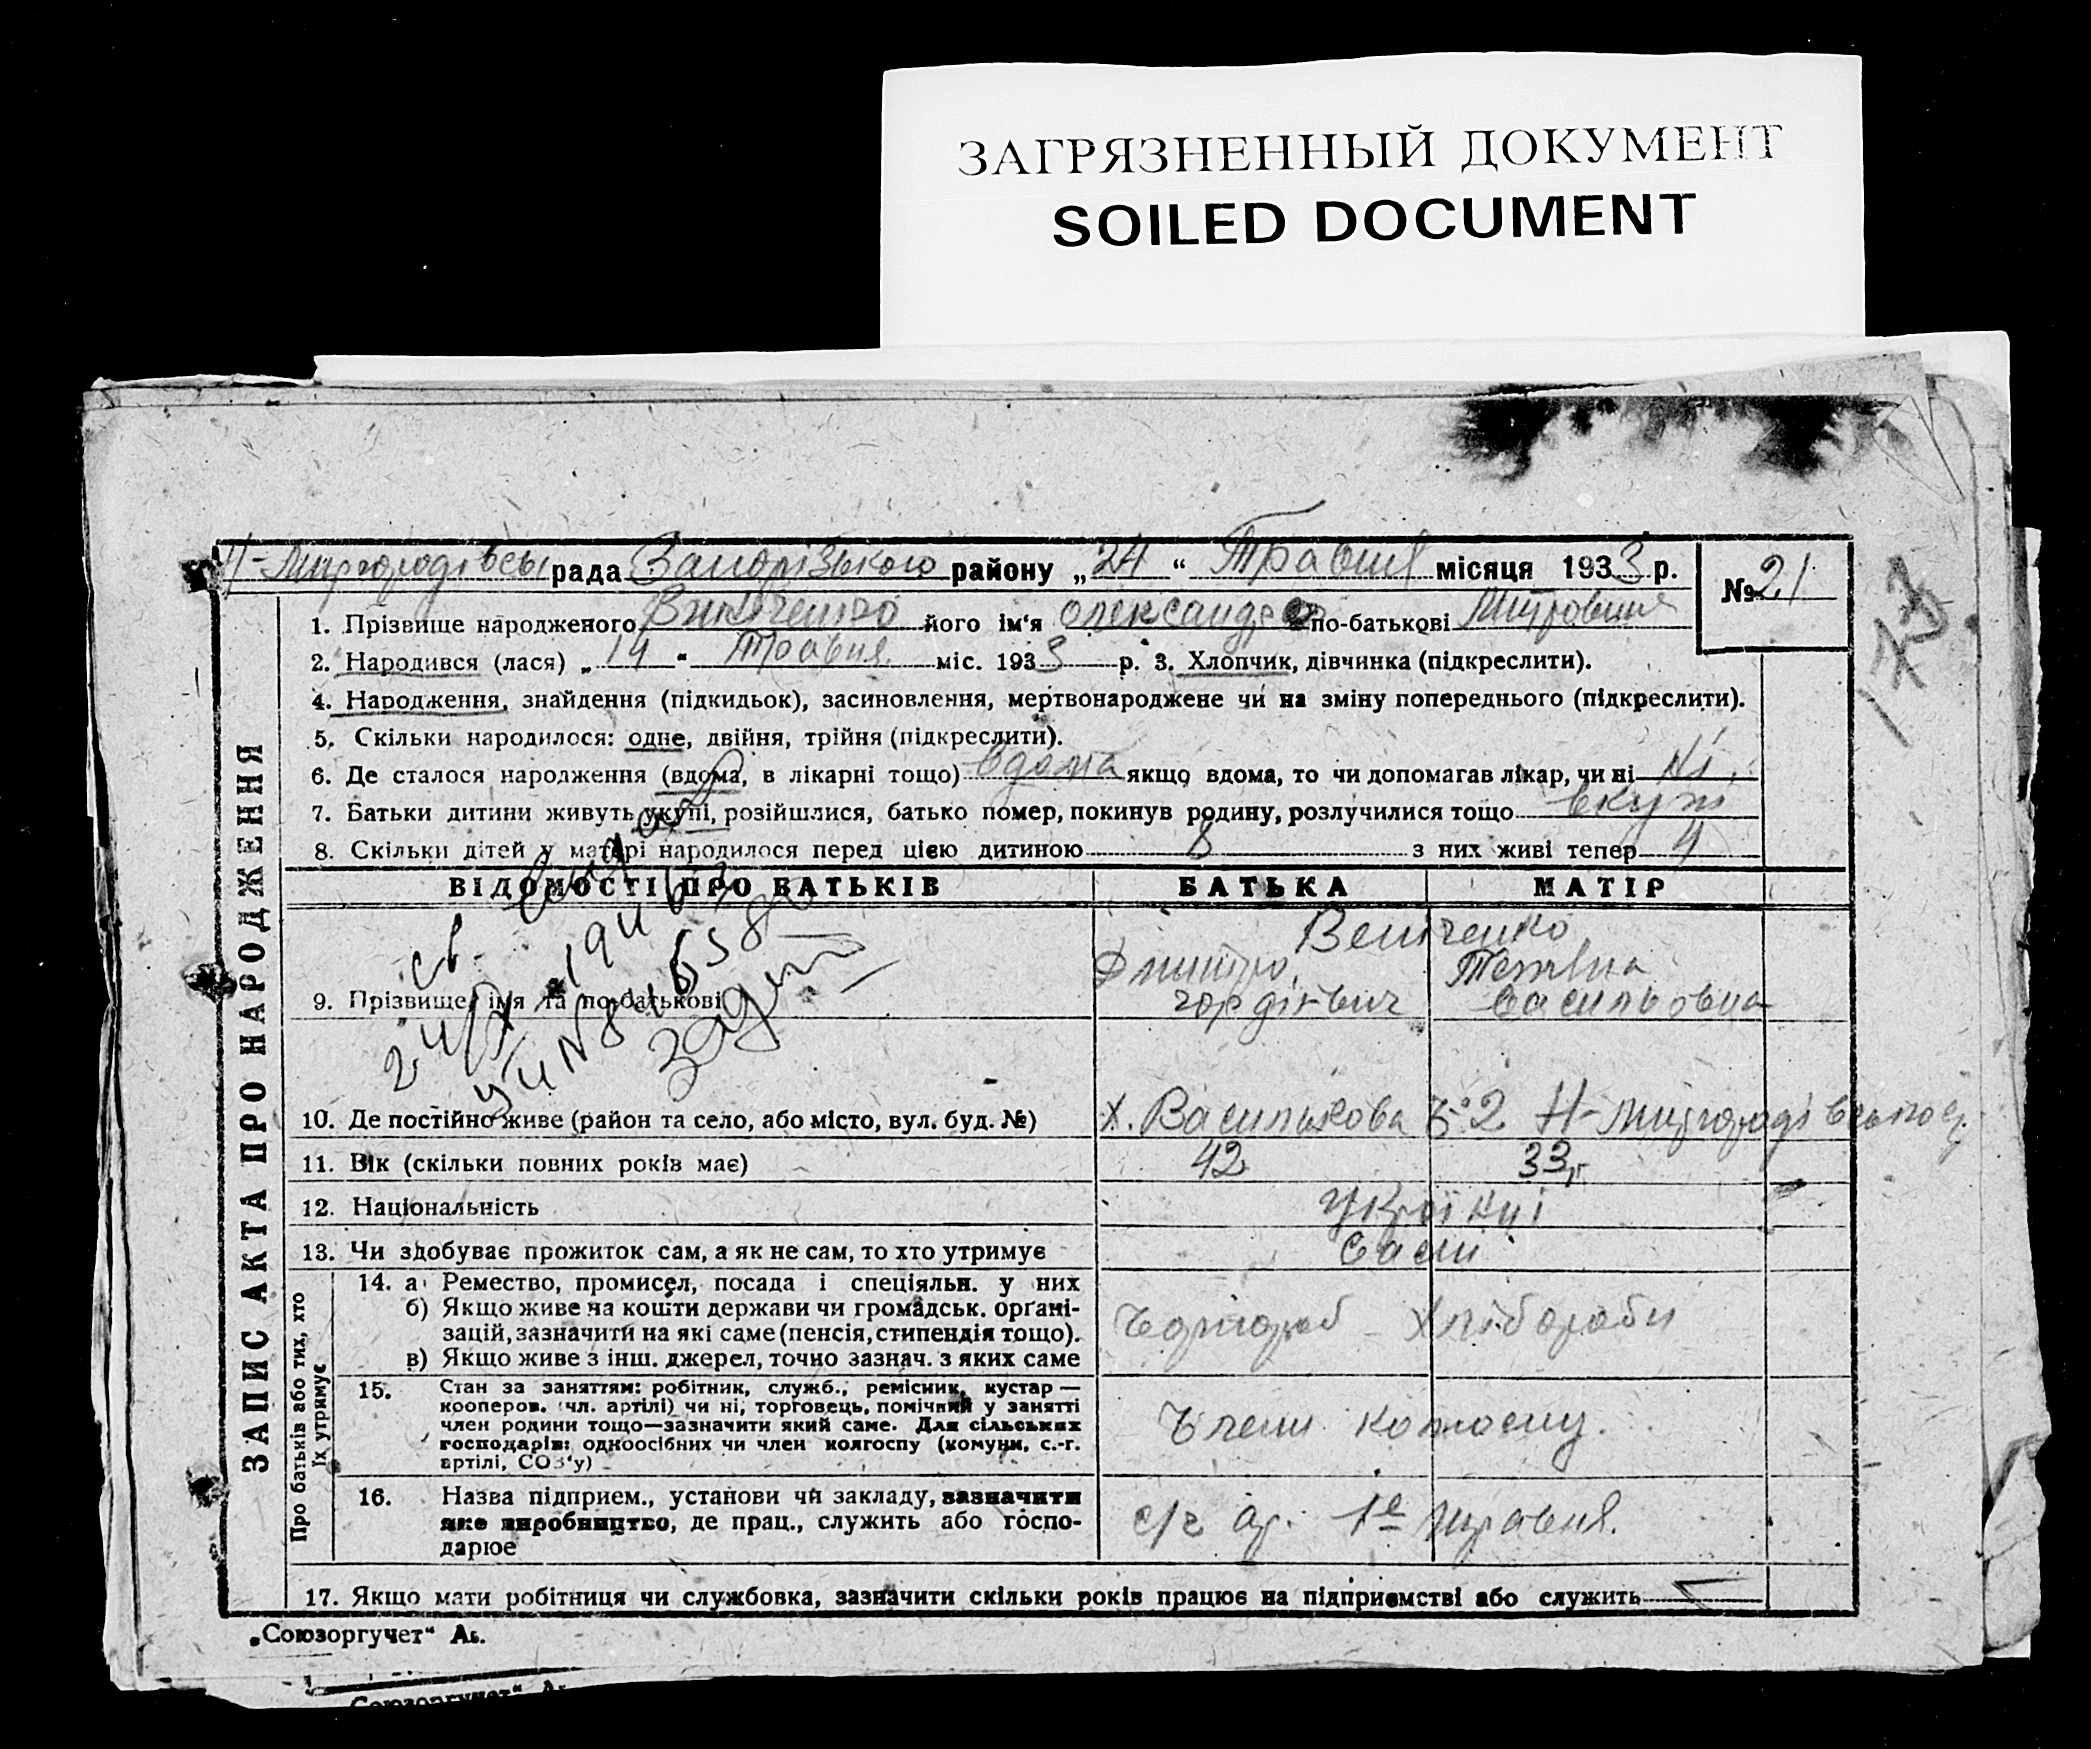 ЗАГРЯЗНЕННЫЙ ДОКУМЕНТ
SOILED DOCUMENT
Н-Миргородівськ рада Запорізького району „24“ Травня місяця 1933 р.
№ 21
173
1. Прізвище народженого його ім‘я Олександр по-батькові Митрович
2. Народився (лася) „14“ Травня міс. 1933 р. 3. Хлопчик, дівчинка (підкреслити).
4. Народження, знайдення (підкидьок), засиновлення, мертвонароджене чи на зміну попереднього (підкреслити).
5. Скільки народилося: одне, двійня, трійня (підкреслити).
6. Де сталося народження (вдома, в лікарні тощо) вдома якщо вдома, то чи допомагав лікар, чи ні ні
7. Батьки дитини живуть укупі, розійшлися, батько помер, покинув родину, розлучилися тощо вкупі
8. Скільки дітей у матері народилося перед цією дитиною 8 з них живі тепер 4
ЗАПИС АКТА ПРО НАРОДЖЕННЯ
ВІДОМОСТІ ПРО БАТЬКІВ БАТЬКА МАТІР
Дмитро Тетяна
9. Прізвище, імя та по-батькові гордієвич Васильовна
10. Де постійно живе (район та село, або місто, вул. буд. №) х. Василькова № 2 Н-Миргородівської
11. Вік (скільки повних років має) 42 33 г
12. Національність Українці
13. Чи здобуває прожиток сам, а як не сам, то хто утримує Самі
Про батьків або тих, хто їх утримує
14. а Ремество, промисел, посада і спеціяльн. у них
б) Якщо живе на кошти держави чи громадськ. орґані-
зацій, зазначити на які саме (пенсія, стипендія тощо). Хлібороби
в) Якщо живе з інш. джерел, точно зазнач. з яких саме
15. Стан за заняттям: робітник, служб., ремісник, кустар —
кооперов. (чл. артілі) чи ні, торговець, помічний у занятті
член родини тощо—зазначити який саме. Для сільських Члени колгоспу.
господарів: одноосібних чи член колгоспу (комуни, с.-г.
артілі, СОЗ‘у)
16. Назва підприєм., установи чи закладу, зазначити
яке виробництво, де прац., служить або госпо- с/г ар. 1е травня.
дарює
17. Якщо мати робітниця чи службовка, зазначити скільки років працює на підприємстві або служить
„Союзоргучет“ Аь.
„Союзоргучет“ Аь.